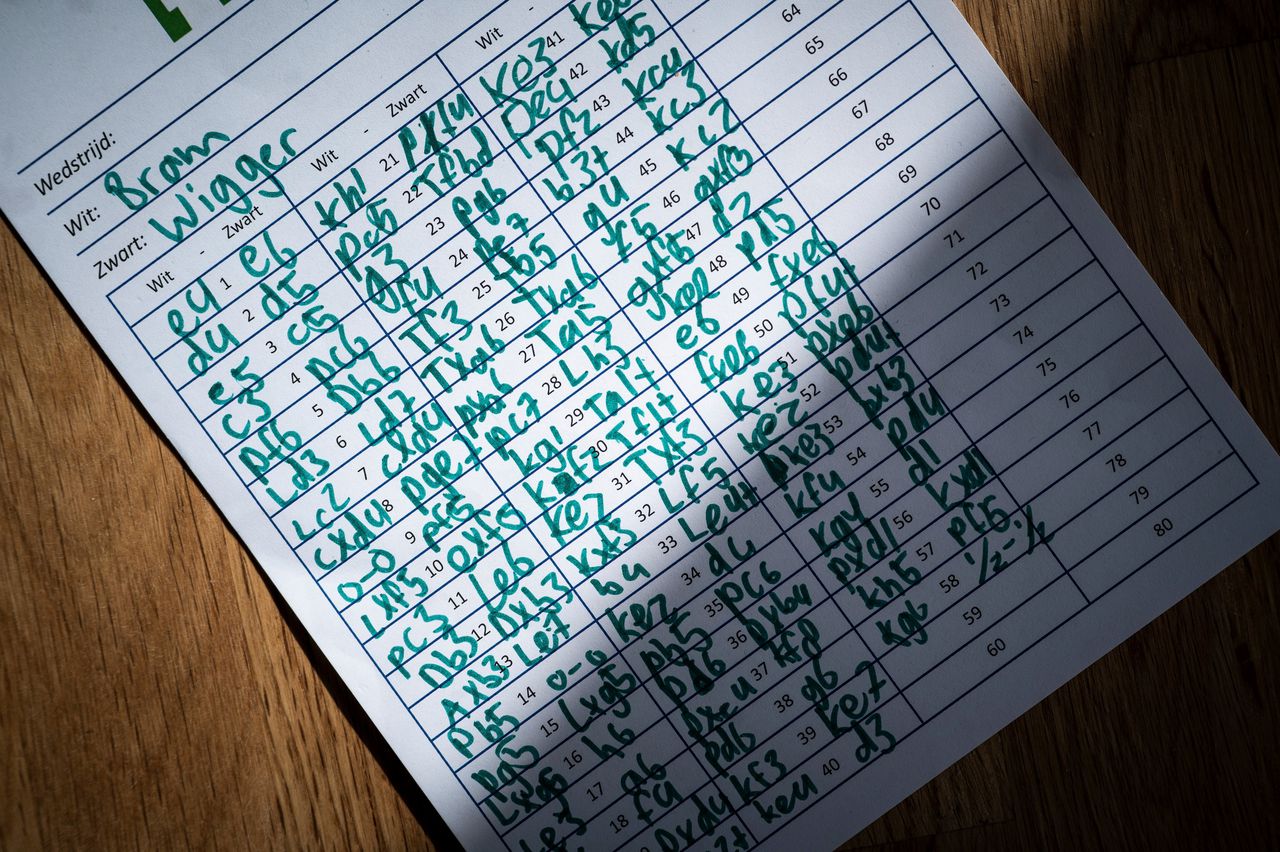 Wedstrijd:
Wit: Bram
Zwart: Wigger
Wit - Zwart
e4 1 e6
d4 2 d5
e5 3 c5
c3 4 pc6
pf6 5 Db6
Ld3 6 Ld7
Lc2 7 cxd4
cxd4 8 pge7
0-0 9 pf5
Lxf5 10 exf5
pc3 11 Le6
Db3 12 Dxb3
Axb3 13 Le7
pb5 14 0-0
pg5 15 Lxg5
Lxg5 16 h6
Le3 17 a6
18 f4
Dxd4
Wit - Zwart
Kh1 21 pxf4
pc5 22 Tfbd
g3 23 pg6
gf4 24 pe7
Tf3 25 Tb5
Txa6 26 Txa6
pxa6 27 Ta5
pc7 28 Lh3
kg1 29 Ta1+
kf2 30 Tf1+
ke2 31 Txf3
kxf3 32 Lf5
b4 33 Le4+
ke2 34 d4
pb5 35 pc6
pd6 36 pxb4
pxc4 37 kf8
pd6 38 g6
kf3 39 ke7
ke4 40 d3
Wit -
Ke3 41
pe4 42 kd5
pf2 43 kc4
b3+ 44 kc3
g4 45 kc2
f5 46 gxf5
gxf5 47 d2
ke2 48 pd5
e6 49 fxe6
fxe6 50 pf4+
ke3 51 pxe6
ke2 52 pd4+
pke3 53 pxb3
kf4 54 pd4
kg4 55 d1
pxd1 56 kxd1
kh5 57 pc5.
kg6 58 ½-½
59
60
64
65
66
67
68
69
70
71
72
73
74
75
76
77
78
79
80